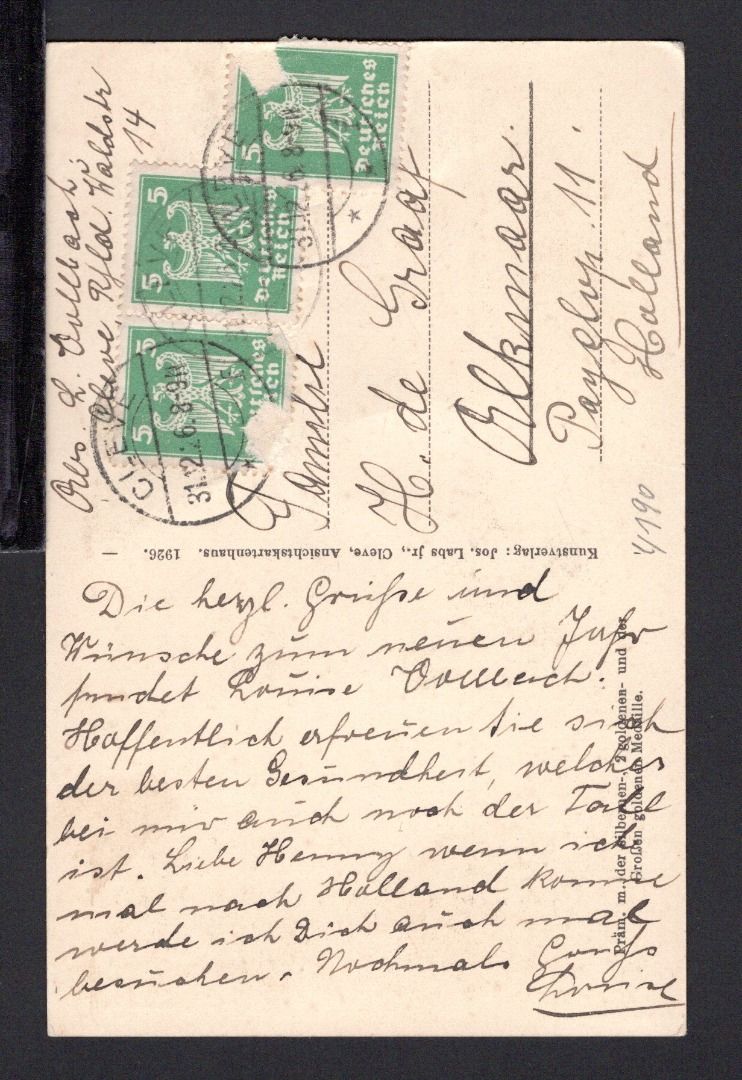 Abs. L. Vollbach,
Cleve Rhld. Waldstr
14
5
Deutsches
Reich
5
Deutsches
Reich
5
Deutsches
Reich
CLEVE
31.12.26.8-9N
CLEVE
31.12.26.8-9N
Familie
H. de Graaf
Alkmaar.
Payglop. 11.
Holland
4/190
Kunstverlag: Jos. Labs jr., Cleve, Ansichtskartenhaus. 1926. —
Präm. m. der silbernen-, 2 goldenen- und der
Großen goldenen Medaille.
Die herzl. Grüße und
Wünsche zum neuen Jahr
sendet Louise Vollbach.
Hoffentlich erfreuen Sie sich
der besten Gesundheit, welches
bei mir auch noch der Fall
ist. Liebe Henny wenn ich
mal nach Holland komme
werde ich Dich auch mal
besuchen. Nochmals
Louise